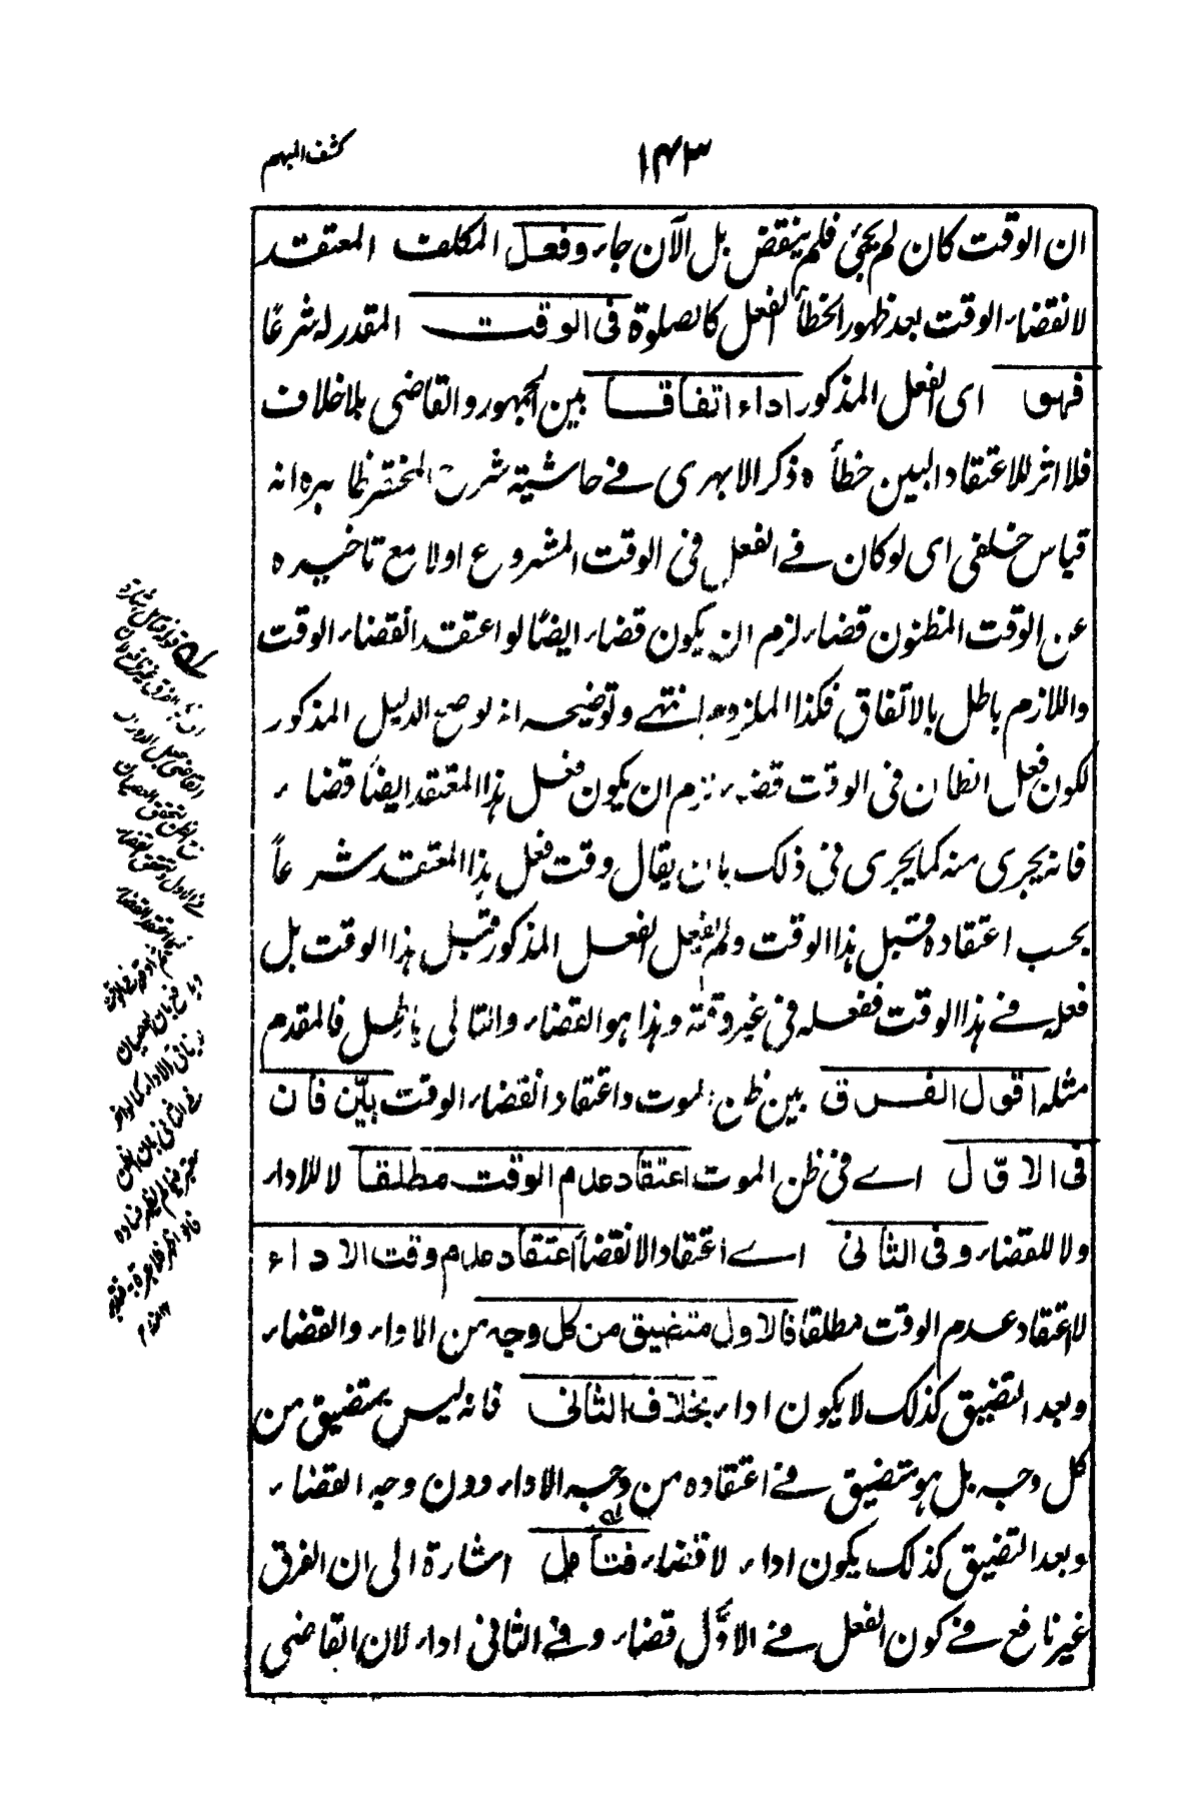 ۱۴۳
كشف المبهم
ان الوقت كان لم يجئ فلم ينقض بل الآن جاء وفعل المكلف المعتقد
لانقضاء الوقت بعد ظهور الخطأ الفعل كالصلوة فى الوقت المقدر له شرعًا
فهو اى الفعل المذكور اداء اتفاقا بين الجمهور والقاضى بلا خلاف
فلا اثر للاعتقاد البين خطأه ذكر الابهرى فے حاشية شرح المختصر ظاهره انه
قياس خلفى اى لو كان فے الفعل فى الوقت المشروع اولا مع تاخيره
عن الوقت المظنون قضاء لزم ان يكون قضاء ايضًا لو اعتقد انقضاء الوقت
واللازم باطل بالاتفاق فكذا الملزوم انتهے وتوضيحه انه لو صح الدليل المذكور
لكون فعل الظان فى الوقت قضاء لزم ان يكون فعل هذا المعتقد ايضًا قضاء
فانه يجرى منه كما يجرى فى ذلك بان يقال وقت فعل هذا المعتقد شرعاً
بحسب اعتقاده قبل هذا الوقت ولم يفعل الفعل المذكور قبل هذا الوقت بل
فعله فے هذا الوقت ففعله فى غير وقته وهذا هو القضاء والتالى باطل فالمقدم
مثله اقول الفرق بين ظن الموت واعتقاد انقضاء الوقت بيّن فان
فى الاوّل اے فى ظن الموت اعتقاد عدم الوقت مطلقا لا للاداء
ولا للقضاء وفى الثانى اے اعتقاد الانقضاء اعتقاد عدم وقت الاداء
لا اعتقاد عدم الوقت مطلقا فالاول متضيق من كل وجه من الاداء والقضاء
وبعد التضيق كذلك لا يكون اداء بخلاف الثانى فانه ليس بمتضيق من
كل وجه بل هو متضيق فے اعتقاده من وجه الاداء دون وجه القضاء
وبعد التضيق كذلك يكون اداء لا قضاء فتأمل اشارة الى ان الفرق
غير نافع فے كون الفعل فے الاوّل قضاء وفے الثانى اداء لان القاضى